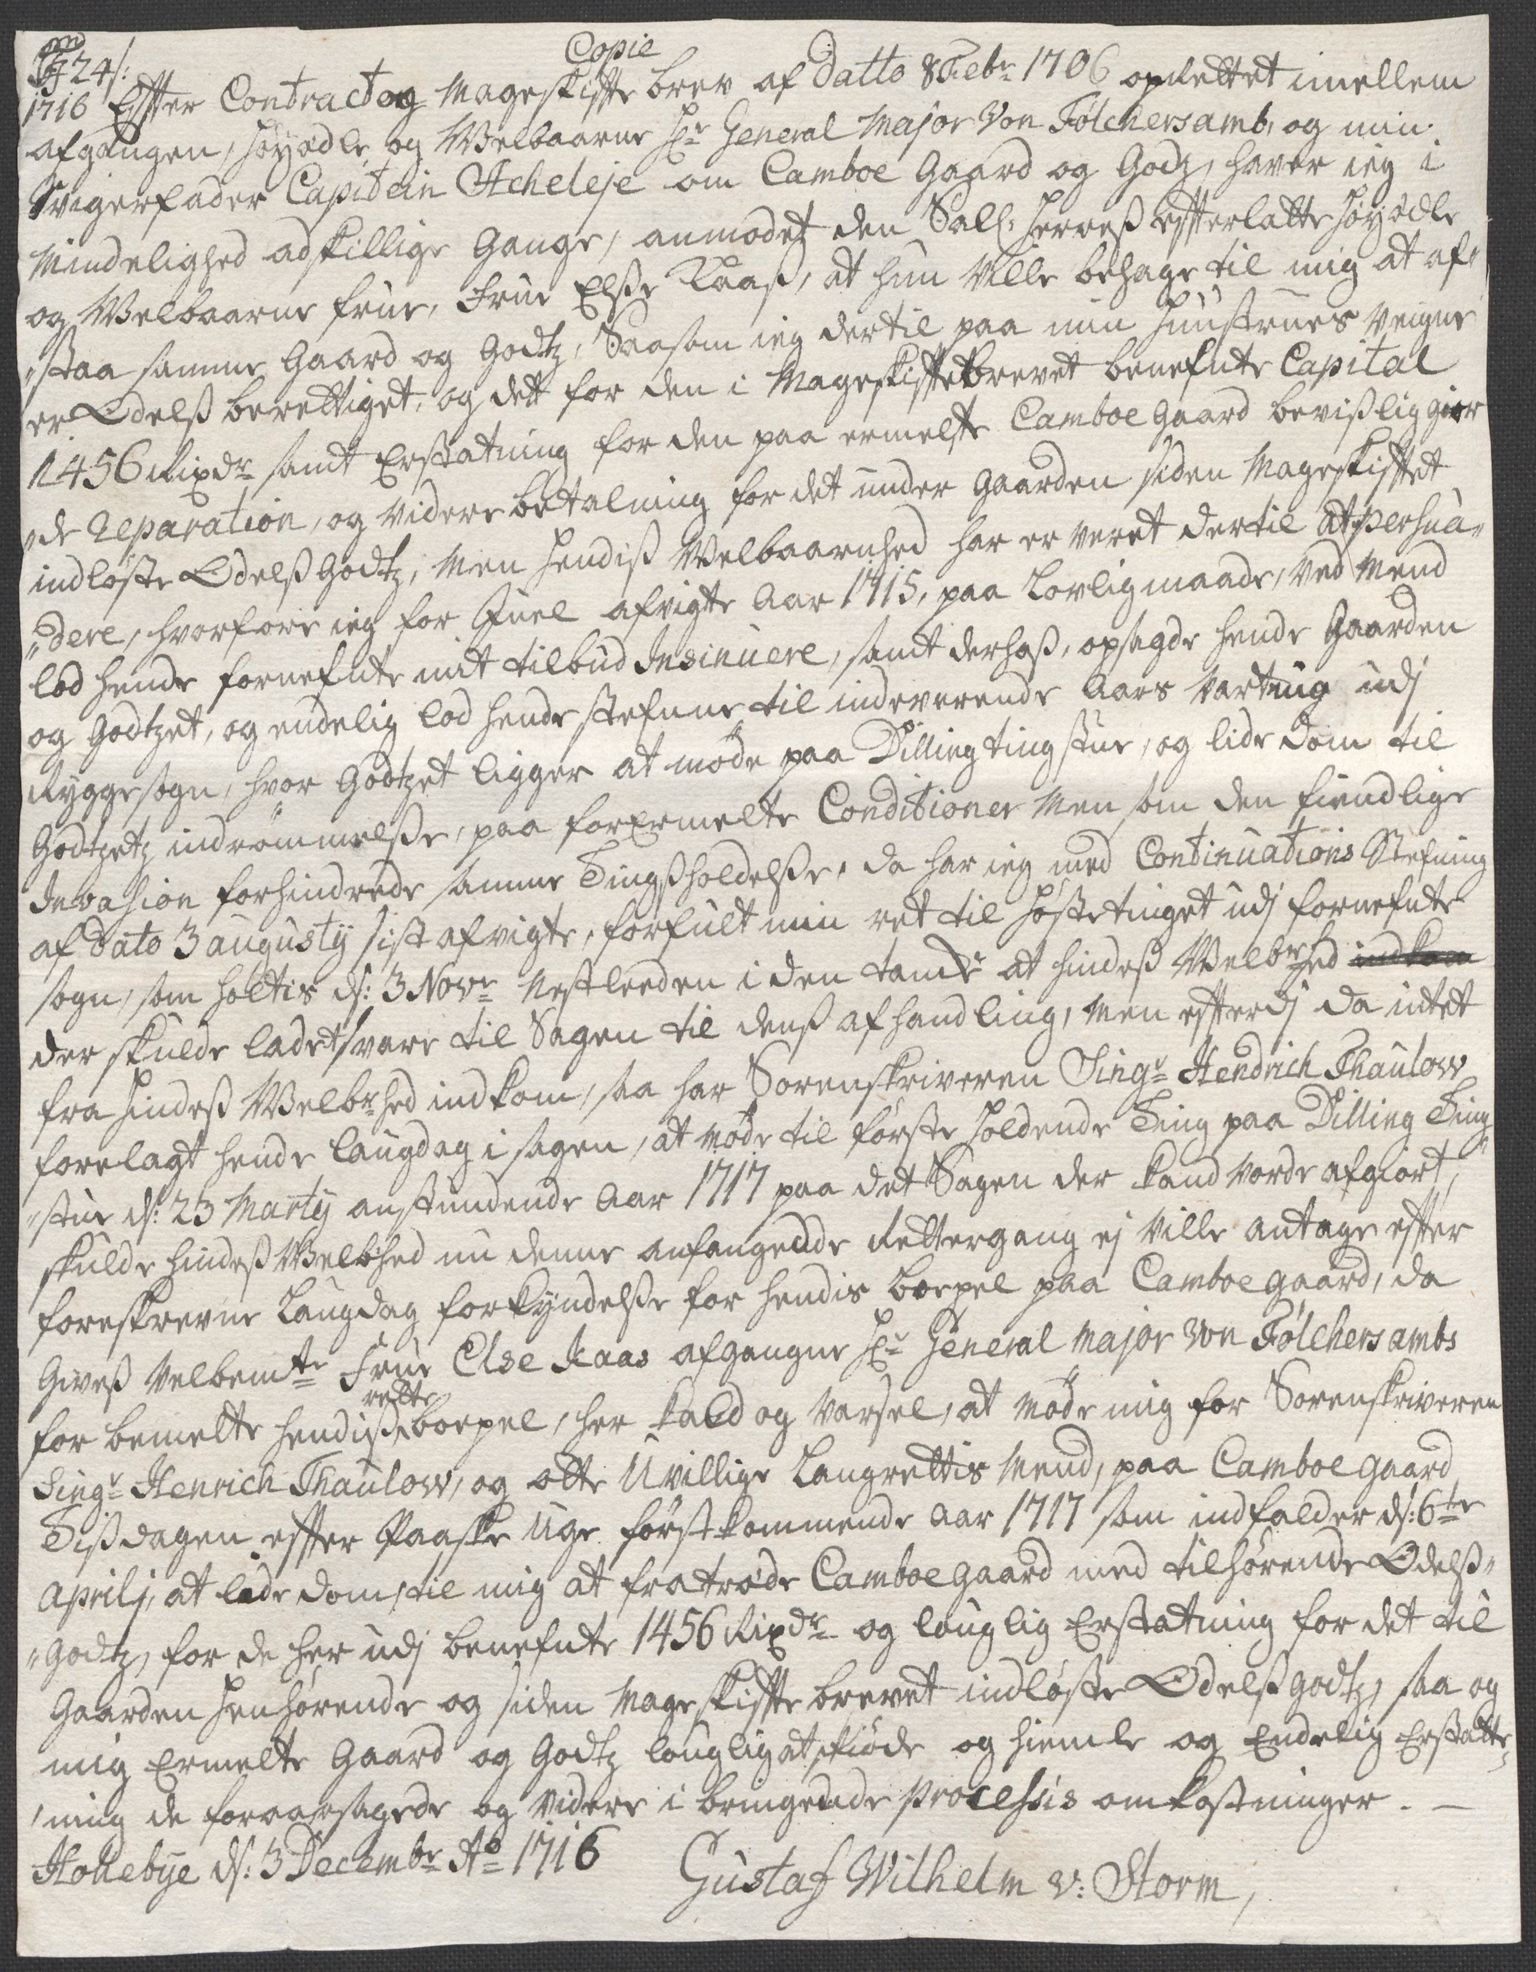 Copie
24/:
1716 Effter Contract og Mageskiffte brev af Datto 8 Febr 1706 oprettet imellem
afgangen, Høyædle og Welbaarne Hr General Major Von Følchersamb, og min
Svigerfader Capitein Acheleje om Camboe Gaard og Godtz, haver ieg i
Mindelighed adskillige Gange, anmodet den Sall: Herres effterlatte Høyædle
og Welbaarne frue, Frue Elsse Kaas, at hun Ville behage til mig at af-
staa samme Gaard og Godtz, Saasom ieg dertil paa min Hustrues Veigne
er Odelss berettiget, og dett for den i Mageskifftebrevet benefnte Capital
1456 Rixdr samt Erstatning for den paa ermelte Camboe Gaard bevisslig gior
de Reparation, og Videre betalning for det under Gaarden siden Mageskifftet
indløste Odelss Godtz, Men hendiss Welbaarnhed har er veret dertil at persua-
dere, hvorfore ieg for Juel afvigte Aar 1715, paa Lovlig maade, Ved Mend
lod hende fornefnte mit tilbud Insinuere, samt derhoss, opsagde hende Gaarden
og Godtzet, og endelig lod hende stefne til indeverende Aars Vartiug udj
Rygge sogn, hvor Godtzet ligger at møde paa Dilling tingstue, og lide Dom til
Godtzetz indrømmelsse, paa forermelte Conditioner Men som den fiendlige
Invasion forhindrede samme Tingssholdelsse, da har ieg med Continuations Stefning
af Dato 3 augusty sist afvigte, forfult min ret til Høstetinget udj fornefnte
sogn, som holtis d: 3 Novr Nestleeden i den tancke at hindess Welbrhed indkom
der skulde ladet svare til Sagen til denss afhandling, Men effterdj da intet
fra hindess Welbrhed indkom, saa har Sorenskriveren Singr Hendrich Thaulow
forelagt hende laugdag i sagen, at møde til første holdende Ting paa Dilling Ting
stue d: 23 Marty anstundende Aar 1717 paa det Sagen der kand vorde afgiort,
skulde hindess Welbhed nu denne anfangende Rettergang ej Ville antage effter
foreskrevne Laugdag forkyndelsse for hendis boepel paa Camboe gaard, da
Givess Velbemte Frue Else Kaas afgangne Hr General Major Von Følchersambs
for bemelte hendiss rette boepel, her kald og Varsel, at Møde mig for Sorenskriveren
Singr Henrich Thaulow, og otte Uvillige Laugrettis Mend, paa Camboe gaard
Tissdagen effter Paaske Uge først kommende Aar 1717 som indfalder d: 6te
Aprilj, at lide dom til mig at fratræde Camboe gaard med tilhørende Odelss
Godtz, for de her udj benefnte 1456 Rixdr og louglig Erstatning for det til
Gaarden henhørende og siden Mageskiffte brevet indløste Odelss godtz, saa og
mig Ermelte Gaard og Godtz louglig at skiøde og hiemle og Endelig Erstatte
mig de foraarsagede og Videre i bringende Processis omkostninger. —
Hollebÿe d: 3 Decembr Ao 1716
Gustaf Wilhelm v: Storm,